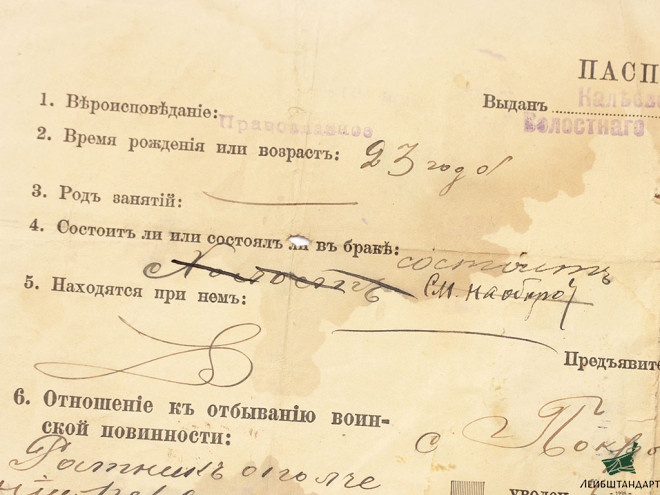 ПАСП
1. Вѣроисповѣданіе:
Православное
Выданъ
Волостнаго
2. Время рожденія или возрастъ: 23 года
3. Родъ занятій:
4. Состоитъ ли или состоялъ ли въ бракѣ: состоитъ
Холостъ
5. Находятся при немъ:
Предъявите
6. Отношеніе къ отбыванію воин-
ской повинности:
Ратникъ ополче
с Покро
уволен
ЛЕЙБШТАНДАРТ